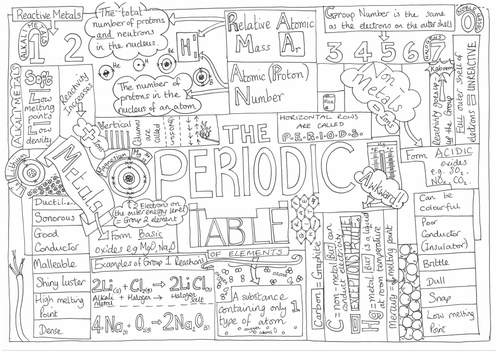 Reactive Metals
ALKALI METALS
1
2
The total
number of protons
and neutrons
in the nucleus.
The number of
protons in the
nucleus of an atom
H
Relative Atomic
Mass Ar
Atomic (Proton)
Number
Group Number is the same
as the electrons on the outer shell
3 4 5 6 7
0
Full outer shell of
electrons = UNREACTIVE
Soft
Low
melting
points
Low
density
Reactivity
Increases
Metals
Vertical
Column
are called
HORIZONTAL ROWS
ARE CALLED
P.E.R.I.O.D.S.
Non
Metals
THE
PERIODIC
TABLE
OF ELEMENTS
Form ACIDIC
oxides
e.g. SO2,
NOx, CO2.
Awkward!
Ductile
Sonorous
Good
Conductor
Malleable
Shiny luster
High melting
Point
Dense
2 Electrons on
the outer energy level
= Group 2 element
Form Basic
oxides e.g MgO, Na2O
Examples of Group 1 Reactions
2Li(s) + Cl2(g) → 2LiCl(s)
Alkali Metal + Halogen → Halogen Salt
4Na + O2 → 2Na2O(s)
A substance
containing only 1
type of atom
Carbon = Graphite
C = non-metal BUT can
conduct electricity
EXCEPTIONS
Hg = metal BUT is a liquid
at room temperature
Mercury = melting point
Can be
colourful
Poor
Conductor
(Insulator)
Brittle
Dull
Snap
Low melting
Point